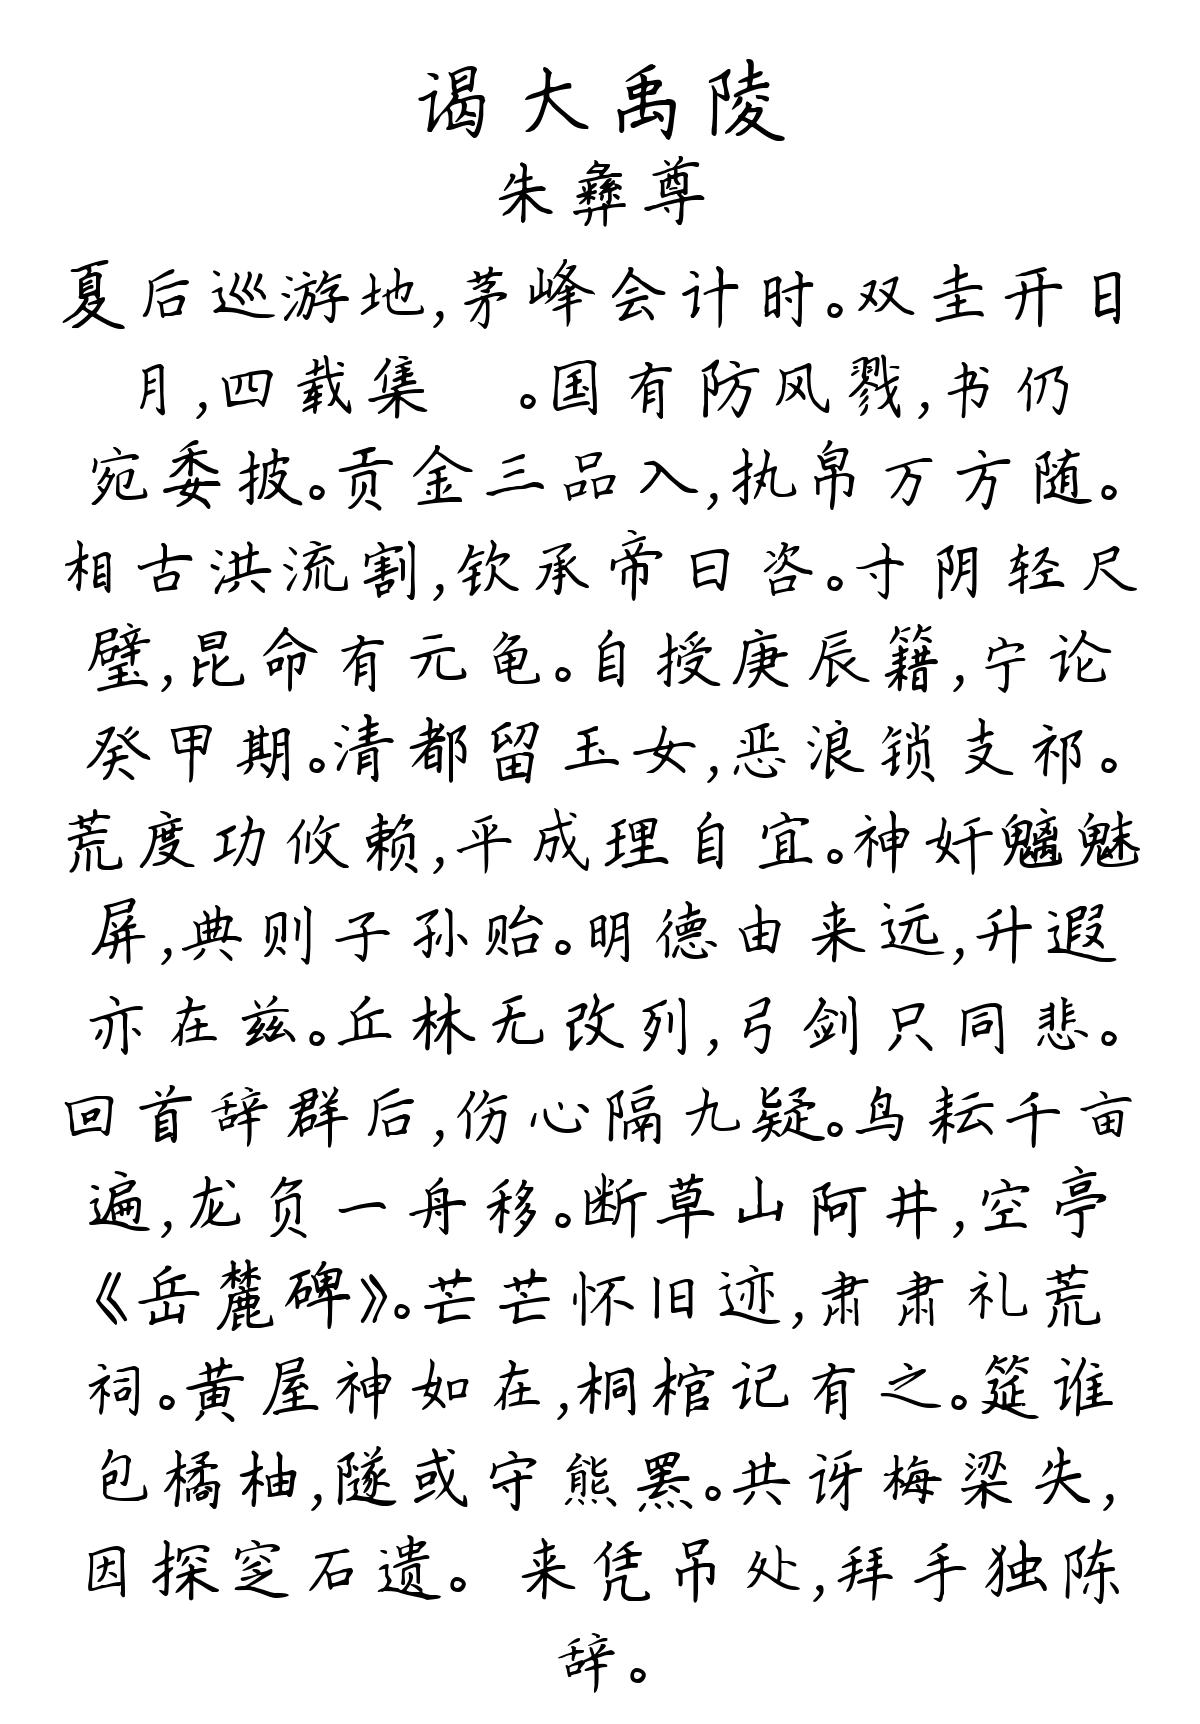 谒大禹陵
朱彝尊
夏后巡游地,茅峰会计时。双圭开日
月,四载集 。国有防风戮,书仍
宛委披。贡金三品入,执帛万方随。
相古洪流割,钦承帝曰咨。寸阴轻尺
璧,昆命有元龟。自授庚辰籍,宁论
癸甲期。清都留玉女,恶浪锁支祁。
荒度功攸赖,平成理自宜。神奸魑魅
屏,典则子孙贻。明德由来远,升遐
亦在兹。丘林无改列,弓剑只同悲。
回首辞群后,伤心隔九疑。鸟耘千亩
遍,龙负一舟移。断草山阿井,空亭
《岳麓碑》。芒芒怀旧迹,肃肃礼荒
祠。黄屋神如在,桐棺记有之。筵谁
包橘柚,隧或守熊罴。共讶梅梁失,
因探窆石遗。 来凭吊处,拜手独陈
辞。